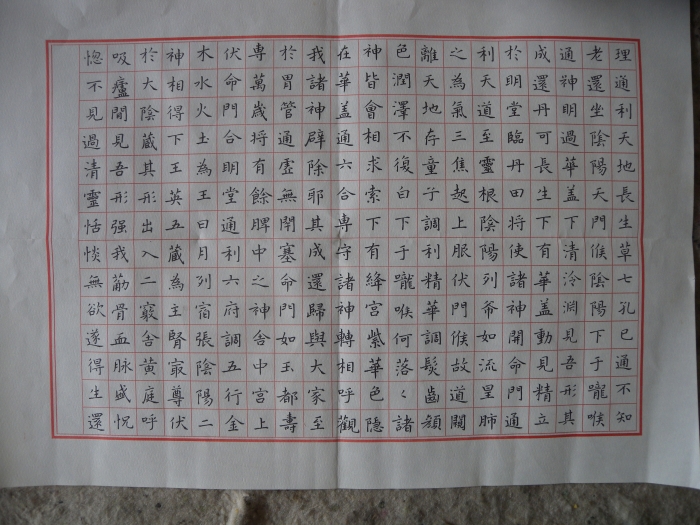 理通利天地長生草七孔已通不知
老還坐陰陽天門候陰陽下于嚨喉
通神明過華蓋下清泠淵見吾形其
成還丹可長生下有華蓋動見精立
於明堂臨丹田將使諸神開命門通
利天道至靈根陰陽列布如流星肺
之為氣三焦起上服伏門候故道闚
離天地存童子調利精華調髮齒顏
色潤澤不復白下于嚨喉何落々諸
神皆會相求索下有絳宮紫華色隱
在華蓋通六合專守諸神轉相呼觀
我諸神辟除耶其成還歸與大家至
於胃管通虛無閉塞命門如玉都壽
專萬歲將有餘脾中之神舍中宮上
伏命門合明堂通利六府調五行金
木水火土為王日月列宿張陰陽二
神相得下玉英五藏為主腎最尊伏
於大陰藏其形出入二竅舍黃庭呼
吸廬間見吾形强我筋骨血脈盛怳
惚不見過清靈恬惔無欲遂得生還